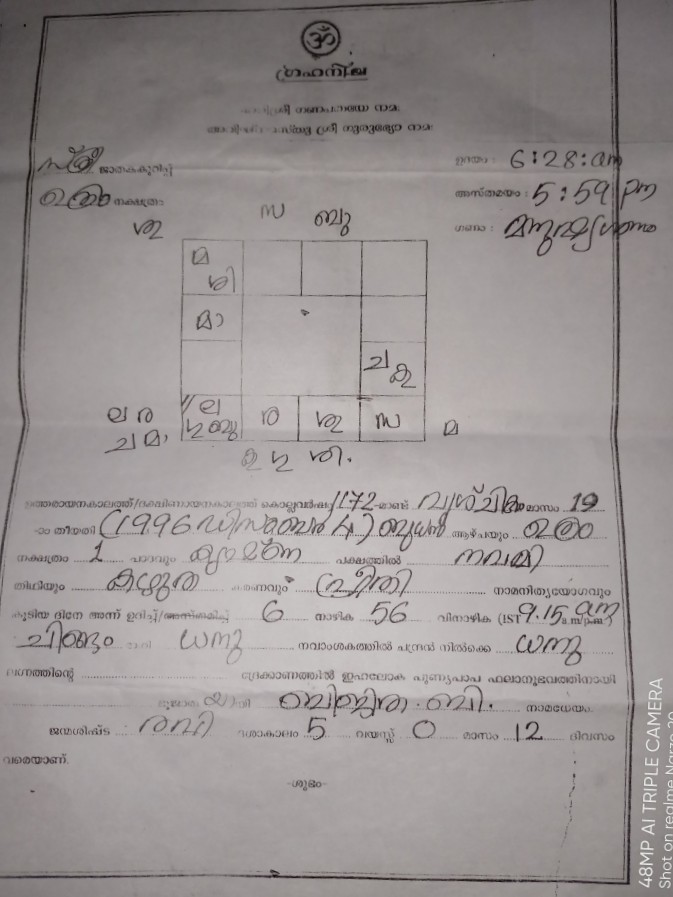 ॐ
ഗ്രഹനില
ശ്രീ ഗണപതയേ നമഃ
ശ്രീ ഗുരുഭ്യോ നമഃ
സ്ത്രീ ജാതകകുറിപ്പ്
ഉദയം : 6:28:am
ഉത്രം നക്ഷത്രം
അസ്തമയം : 5:59 pm
ഗണം : മനുഷ്യഗണം
ശു സ ബു
മ ശി
മാ
ച കു
ല ഗു ബു ര ശു സ മ
ല ര
ച മ
ഉത്തരായനകാലത്ത്/ദക്ഷിണായനകാലത്ത് കൊല്ലവർഷം 1172-മാണ്ട് വൃശ്ചികം മാസം 19
-ാം തീയതി (1996 ഡിസംബർ 4) ബുധൻ ആഴ്ചയും ഉത്രം
നക്ഷത്രം 1 പാദവും കൃഷ്ണ പക്ഷത്തിൽ നവമി
തിഥിയും കഴുത കരണവും പ്രീതി നാമനിത്യയോഗവും
കൂടിയ ദിനേ അന്ന് ഉദിച്ച്/അസ്തമിച്ച് 6 നാഴിക 56 വിനാഴിക (IST 9.15 am a.m/p.m)
ചിങ്ങം രാശി ധനു നവാംശകത്തിൽ ചന്ദ്രൻ നിൽക്കെ ധനു
ലഗ്നത്തിന്റെ ദ്രേക്കാണത്തിൽ ഇഹലോക പുണ്യപാപ ഫലാനുഭവത്തിനായി
ബി. നാമധേയം.
ജന്മശിഷ്ട രവി ദശാകാലം 5 വയസ്സ് 0 മാസം 12 ദിവസം
വരെയാണ്.
-ശുഭം-
48MP AI TRIPLE CAMERA
Shot on realme Narzo 20